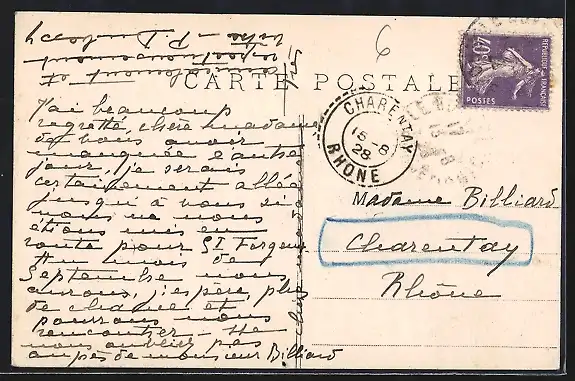 CARTE POSTALE
6
REPUBLIQUE FRANÇAISE
40c
POSTES
CHARENTAY
15-8
28
RHÔNE
J'ai beaucoup
regretté, chère madame
de vous avoir
manquée l'autre
jour, je serais
certainement allée
jusqu'à vous si
nous ne nous
étions mis en
route pour St Forgeux
Au mois de
Septembre nous
aurons, j'espère, plus
de chance et
pourrons nous
rencontrer - Ne
nous oubliez pas
auprès de monsieur Billiard
Madame Billiard
Charentay
Rhône